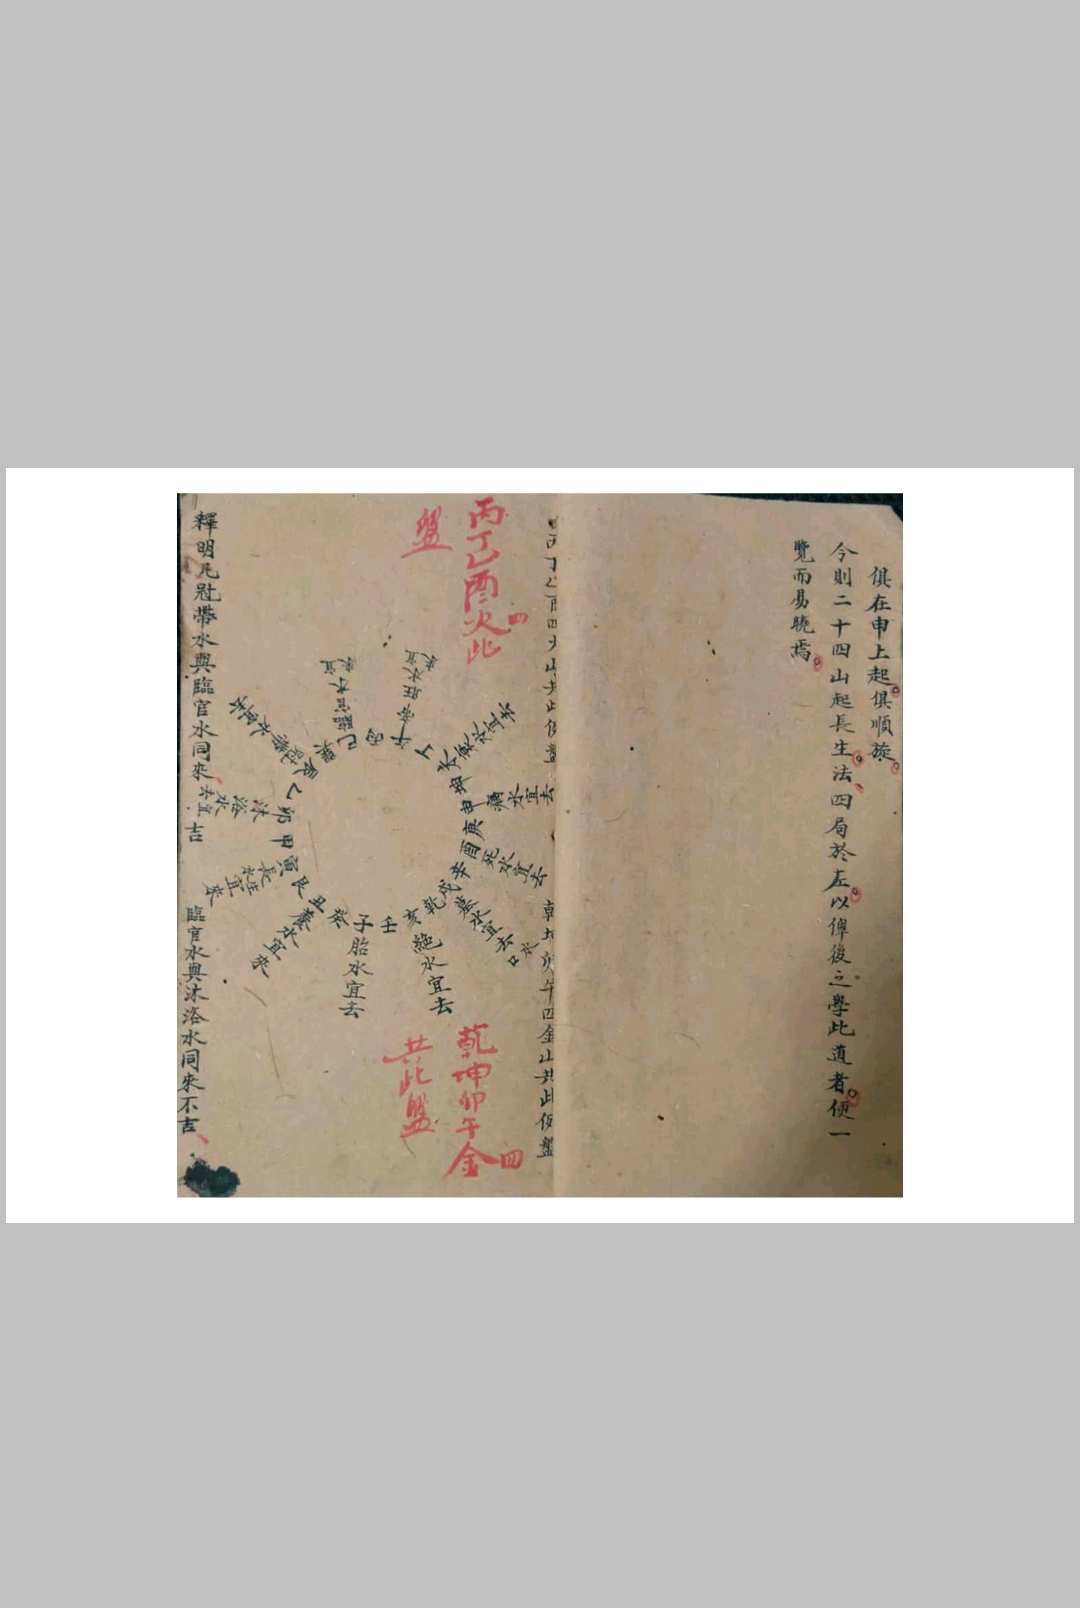 俱在申上起俱順旋
今則二十四山起長生法四局於左以俾後之學此道者便一
覽而易曉焉
丙丁乙酉四火山共此便盤
乾坤卯午四金山共此便盤
丙丁乙酉四火此
盤
乾坤卯午四金
共此盤
丙
午帝旺水宜來
丁
未衰水宜去
坤
申病水宜去
庚
酉死水宜去
辛
戌墓水宜去口水
乾
亥絕水宜去
壬
子胎水宜去
癸
丑養水宜來
艮
寅長生水宜來
甲
卯沐浴水宜去
乙
辰冠帶水宜去
巽
巳臨官水宜來
釋明凡冠帶水與臨官水同來吉
臨官水與沐浴水同來不吉